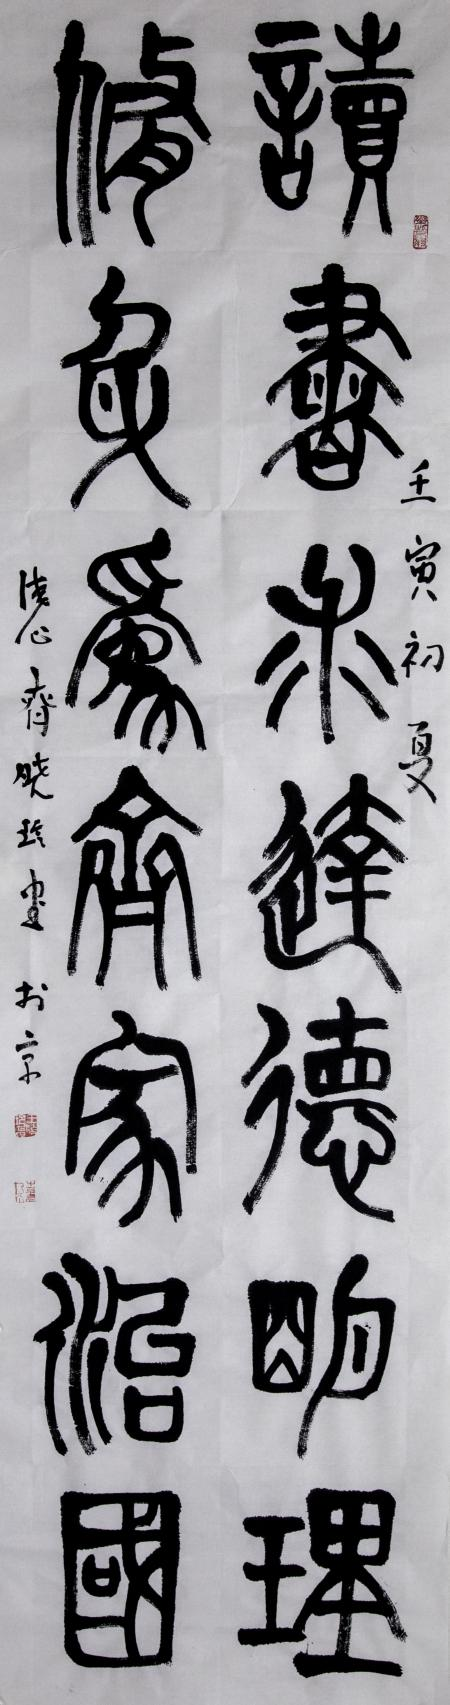 壬寅初夏
讀書求達德明理
修身爲齊家治國
心齋曉玲書於京